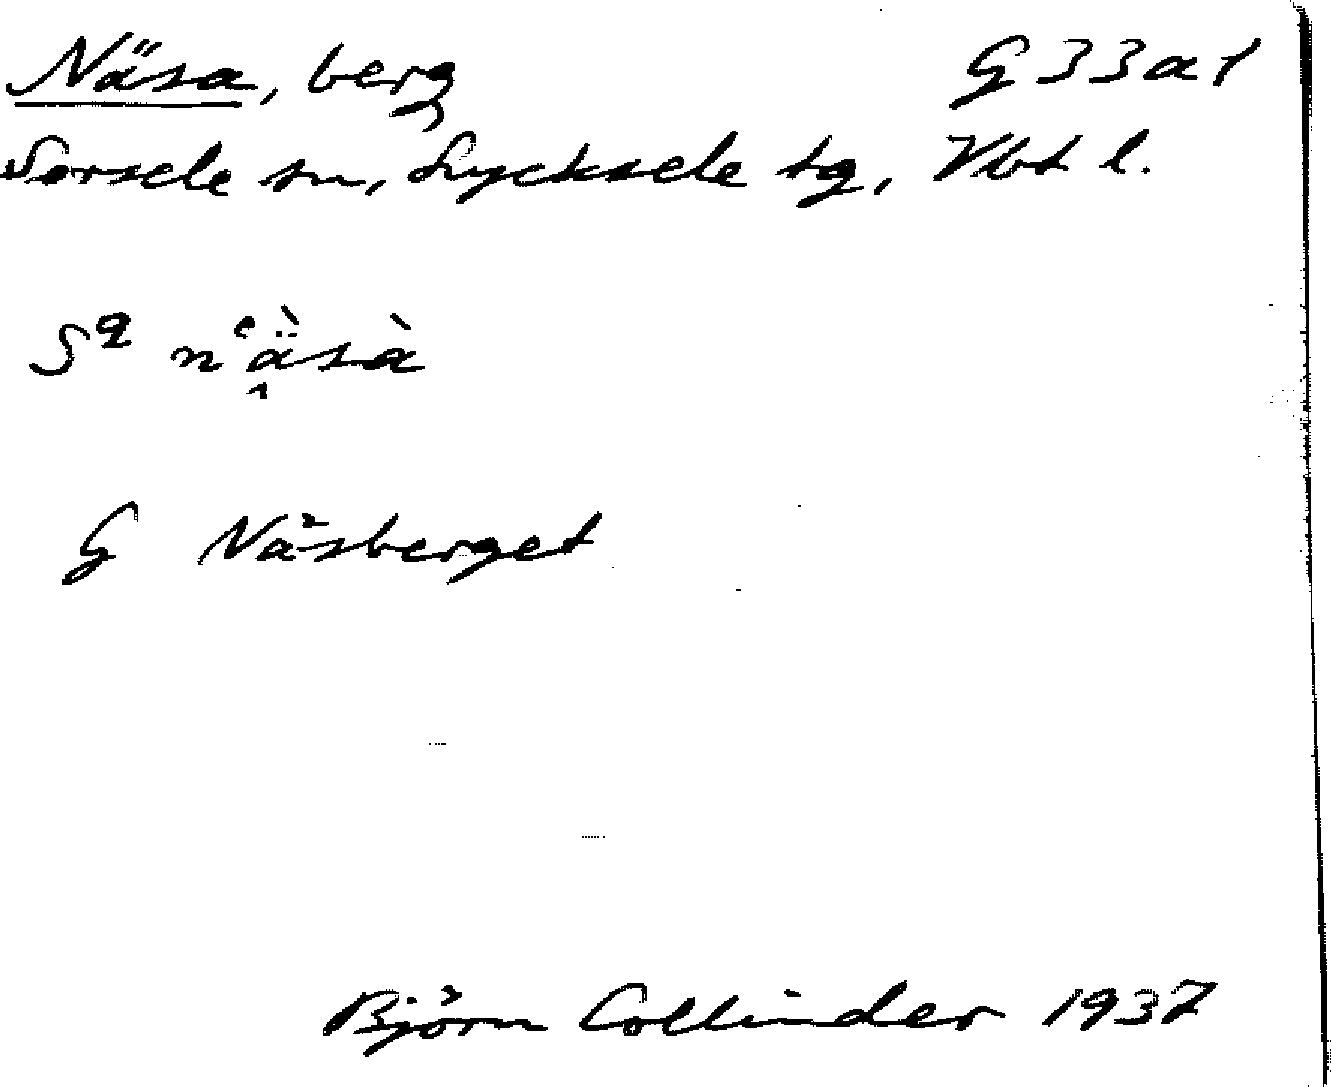 Näsa, berg G 33 a 1
Sorsele sn, Lycksele tg, Vbt l.
S² nᵉä̭̀sà
G Näsberget
Björn Collinder 1937